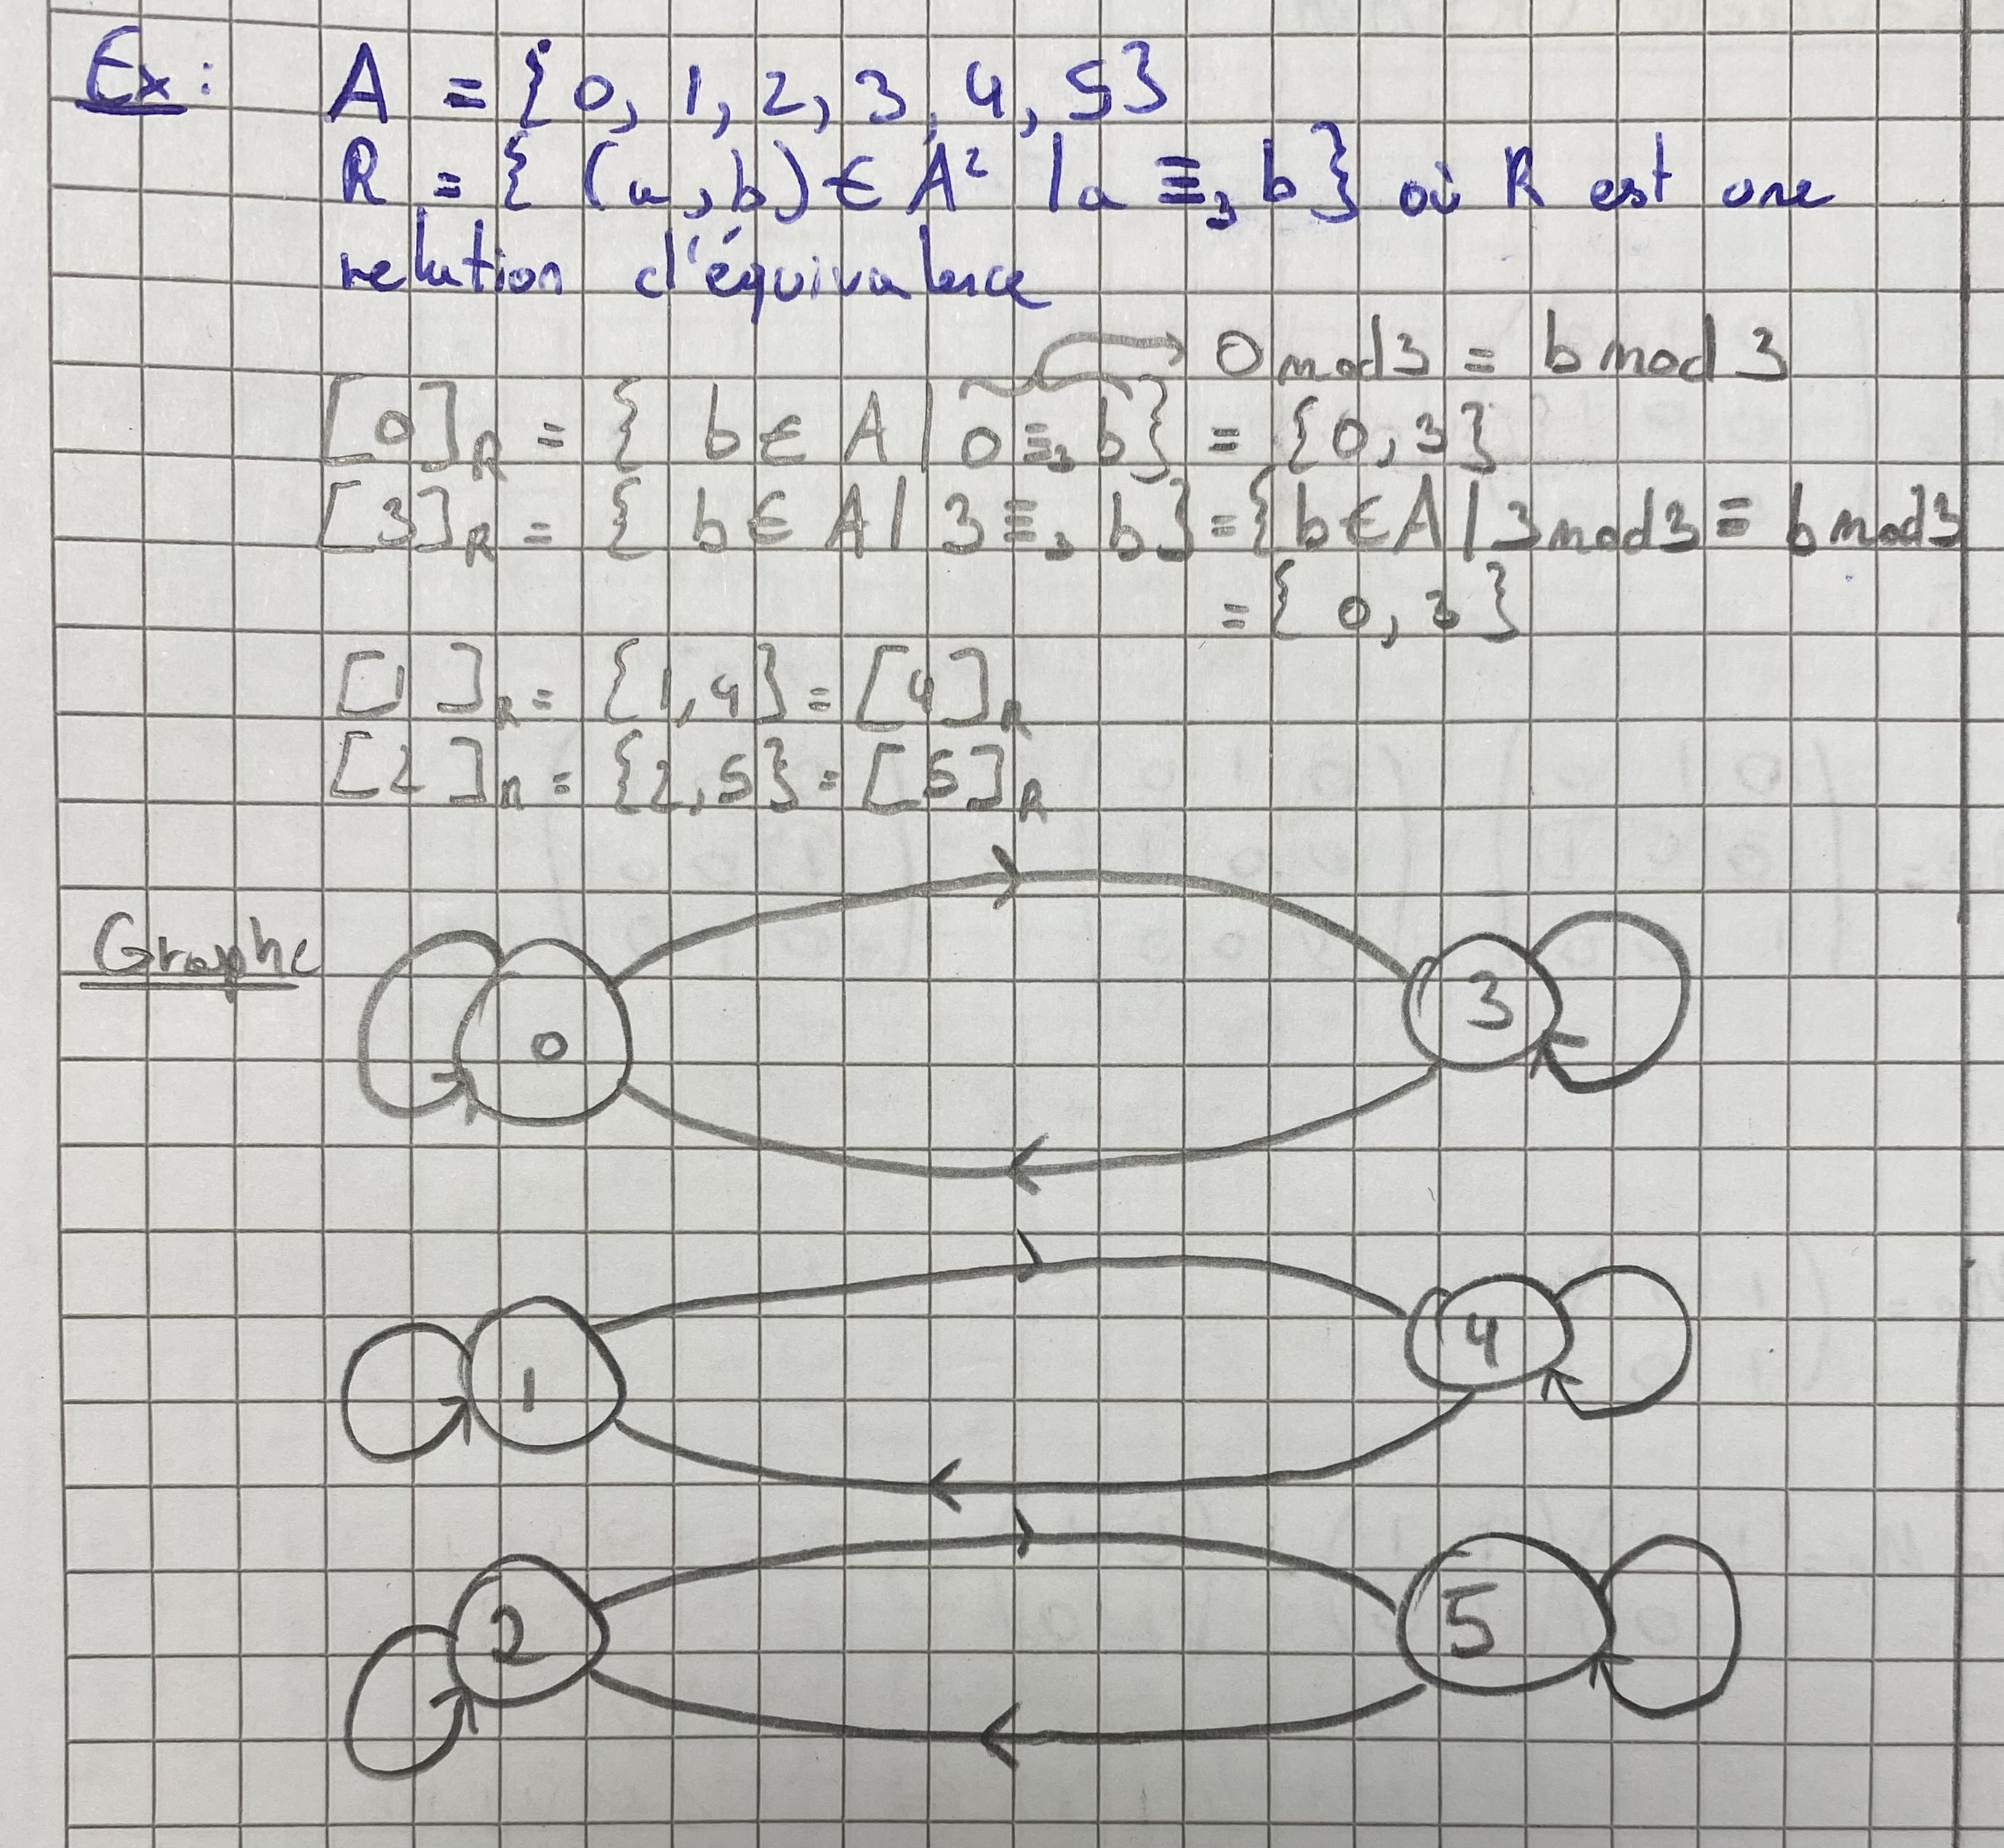 Ex: A = {0, 1, 2, 3, 4, 5}
R = { (a,b) ∈ A² | a ≡₃ b} où R est une
relation d'équivalence
0 mod 3 = b mod 3
[0]R = { b ∈ A | 0 ≡₃ b} = {0, 3}
[3]R = { b ∈ A | 3 ≡₃ b} = {b ∈ A | 3 mod 3 ≡ b mod 3
= { 0, 3 }
[1]R = {1,4} = [4]R
[2]R = {2,5} = [5]R
Graphe
0 3
1 4
2 5